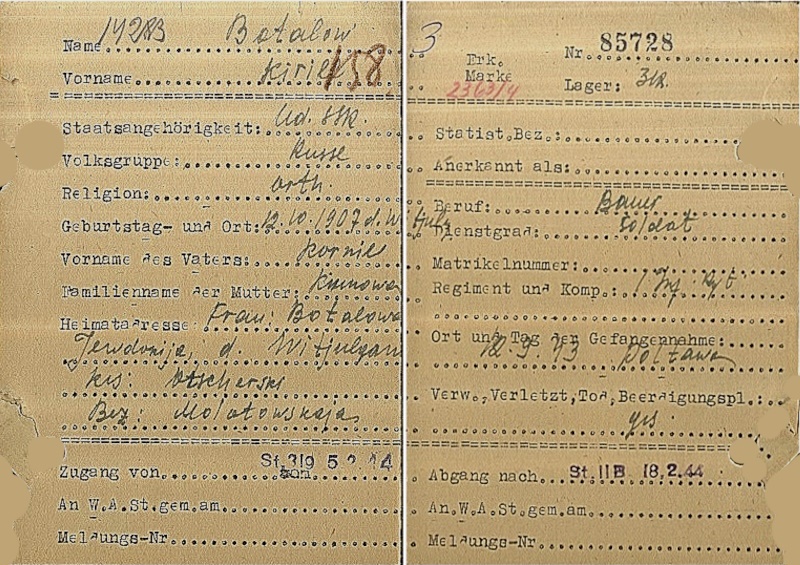 Name 14283 Botalow
Vorname Kiriel 158
Staatsangehörigkeit: Ud. SSR.
Volksgruppe: Russe
Religion: orth.
Geburtstag- und Ort: 12.10.1907 d. Witjulg
Vorname des Vaters: Korniel
Familienname der Mutter:
Heimatadresse: Frau: Botalowa
Jewdokija, d. Witjulgan
Krs: Otscherski
Bez: Molotowskaja
Zugang von St. 319 5 2.44
An W.A.St.gem.am
Meldungs-Nr
3
Erk. Marke 2363/4
Nr. 85728
Lager: 3k.
Statist.Bez.:
Anerkannt als:
Beruf: Bauer
Dienstgrad: Soldat
Matrikelnummer:
Regiment und Komp.: 1 Inf. Rgt
Ort und Tag der Gefangennahme:
12.9.43 Poltawa
Verw.,Verletzt,Tod,Beerdigungspl.:
grs
Abgang nach St. II B 18.2.44
An W.A.St.gem.am
Meldungs-Nr